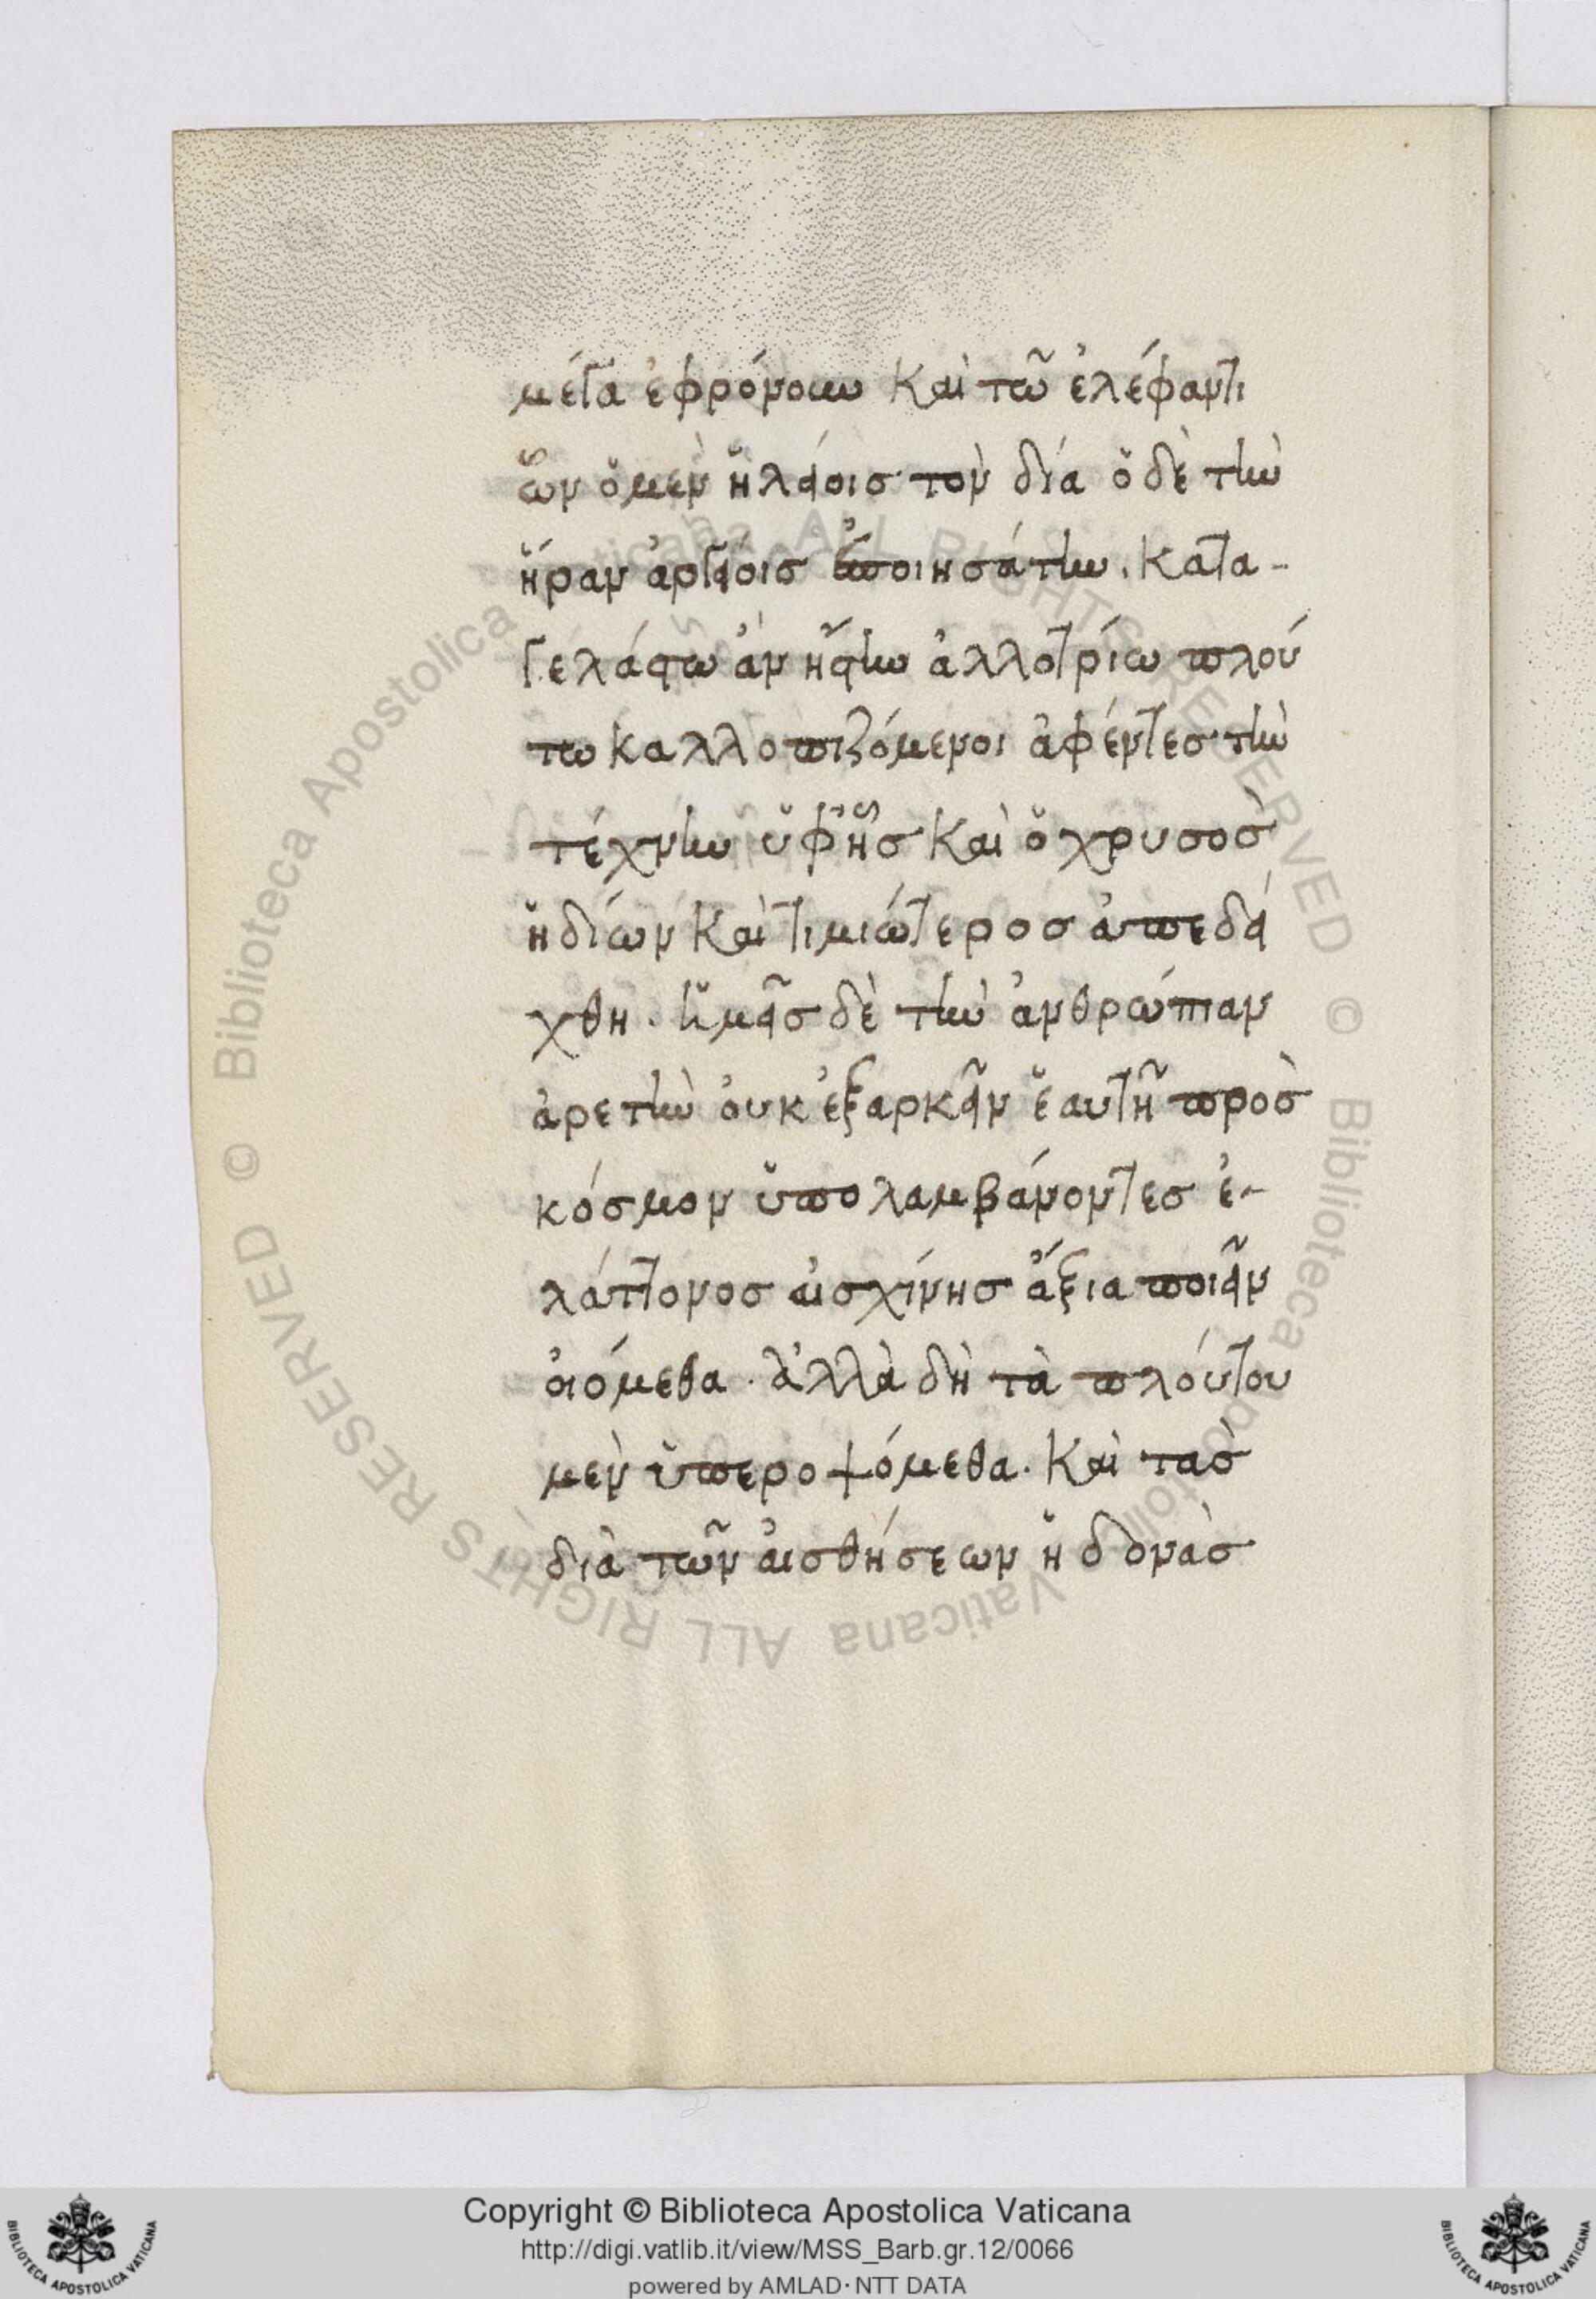 μέγα ἐφρόνουν καὶ τῶ ἐλέφαντι
ὧν ὁ μὲν ἠλείοις τὸν δία ὁ δὲ τὴν
ἥραν ἀργείοις ἐποιησάτην. κατα-
γελάστω ἂν ἤστην ἀλλοτρίω πλού
τω καλλοπιζόμενοι ἀφέντες τὴν
τέχνην ὑφ' ἧς καὶ ὁ χρυσὸς
ἡδίων καὶ τιμιώτερος ἀπεδεί
χθη. ἡμεῖς δὲ τὴν ἀνθρώπιαν
ἀρετὴν οὐκ ἐξαρκεῖν ἑαυτῆ πρὸς
κόσμον ὑπολαμβάνοντες ἐ-
λάττονος αἰσχίνης ἄξια ποιεῖν
οἰόμεθα. ἀλλὰ δὴ τὰ πλούτου
μὲν ὑπεροψόμεθα. καὶ τὰς
διὰ τῶν αἰσθήσεων ἡδονὰς
© Biblioteca Apostolica Vaticana ALL RIGHTS RESERVED © Biblioteca Apostolica Vaticana ALL RIGHTS RESERVED
Copyright © Biblioteca Apostolica Vaticana
http://digi.vatlib.it/view/MSS_Barb.gr.12/0066
powered by AMLAD·NTT DATA
BIBLIOTECA APOSTOLICA VATICANA
BIBLIOTECA APOSTOLICA VATICANA